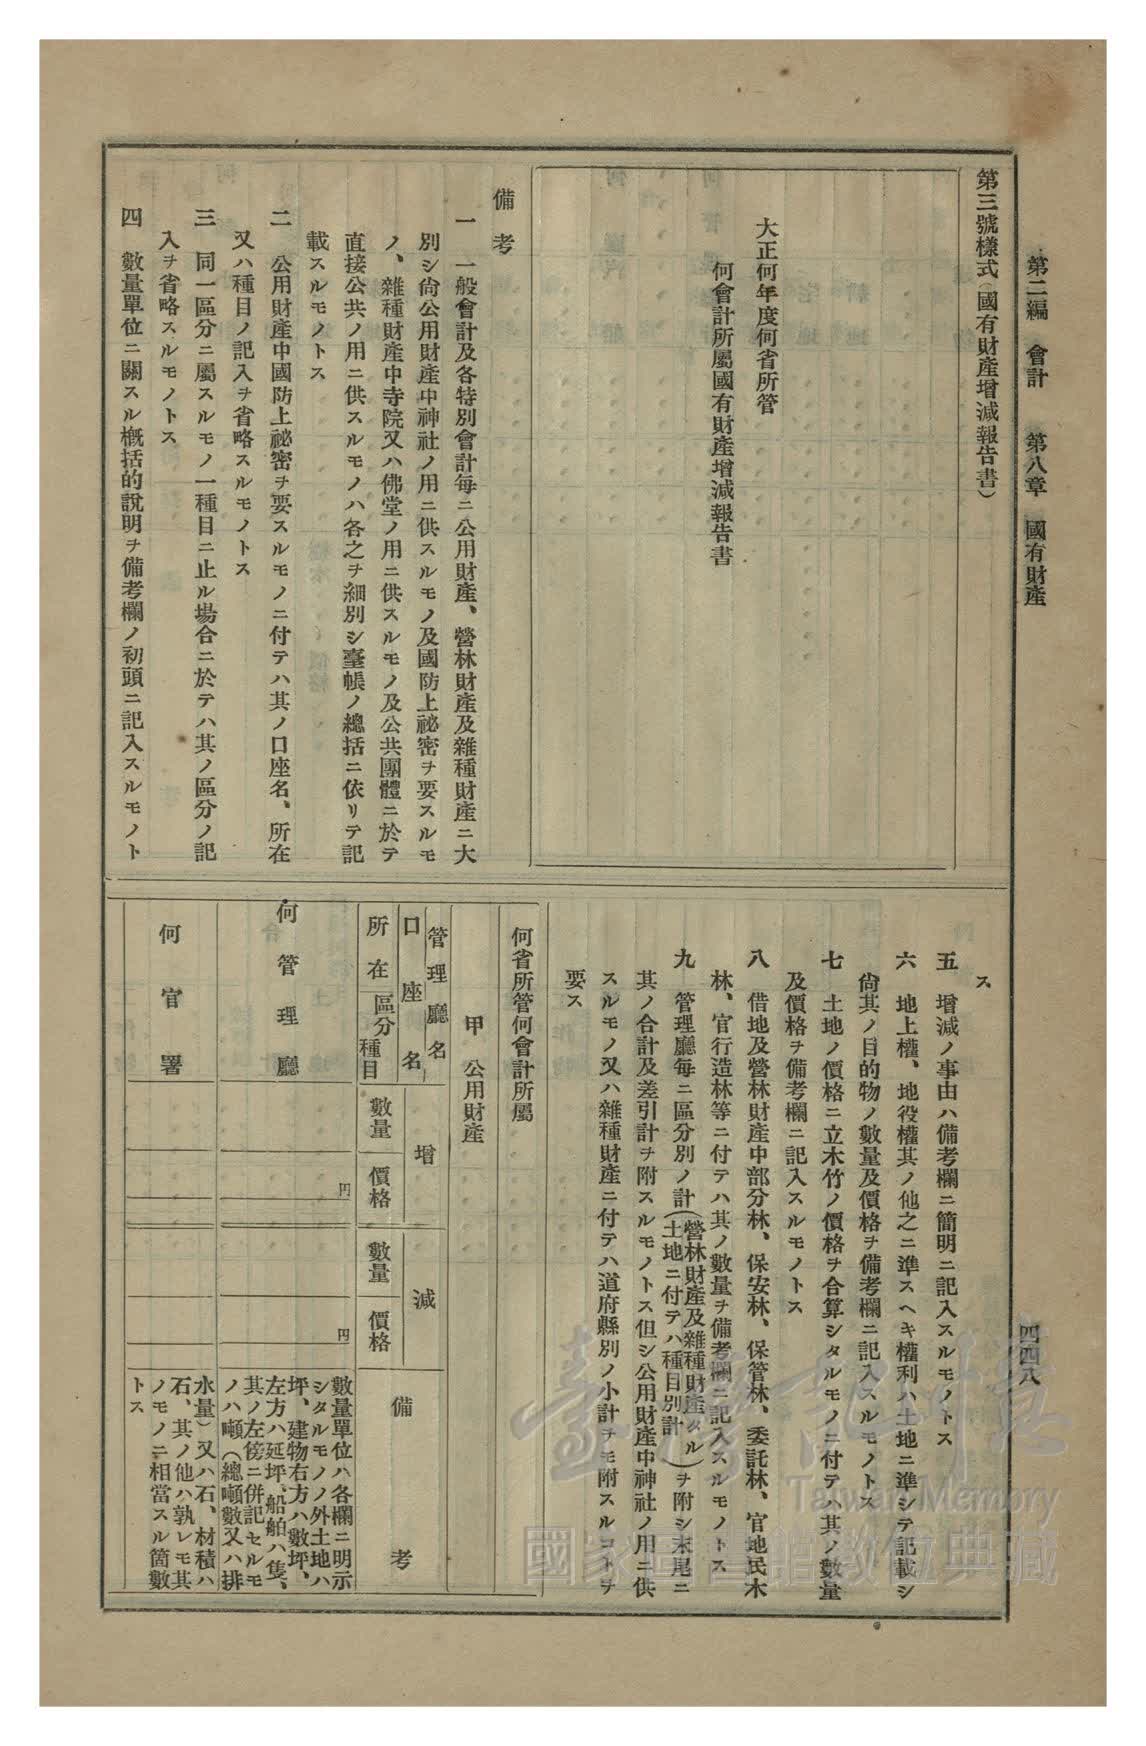 第二編　會計　　第八章　國有財產
四四八
第三號樣式（國有財產增減報告書）
大正何年度何省所管
何會計所屬國有財產增減報告書
備考
一　一般會計及各特別會計每ニ公用財產、營林財產及雜種財產ニ大
別シ尙公用財產中神社ノ用ニ供スルモノ及國防上祕密ヲ要スルモ
ノ、雜種財產中寺院又ハ佛堂ノ用ニ供スルモノ及公共團體ニ於テ
直接公共ノ用ニ供スルモノハ各之ヲ細別シ臺帳ノ總括ニ依リテ記
載スルモノトス
二　公用財產中國防上祕密ヲ要スルモノニ付テハ其ノ口座名、所在
又ハ種目ノ記入ヲ省略スルモノトス
三　同一區分ニ屬スルモノ一種目ニ止ル場合ニ於テハ其ノ區分ノ記
入ヲ省略スルモノトス
四　數量單位ニ關スル槪括的說明ヲ備考欄ノ初頭ニ記入スルモノト
ス
五　增減ノ事由ハ備考欄ニ簡明ニ記入スルモノトス
六　地上權、地役權其ノ他之ニ準スヘキ權利ハ土地ニ準シテ記載シ
尙其ノ目的物ノ數量及價格ヲ備考欄ニ記入スルモノトス
七　土地ノ價格ニ立木竹ノ價格ヲ合算シタルモノニ付テハ其ノ數量
及價格ヲ備考欄ニ記入スルモノトス
八　借地及營林財產中部分林、保安林、保管林、委託林、官地民木
林、官行造林等ニ付テハ其ノ數量ヲ備考欄ニ記入スルモノトス
九　管理廳每ニ區分別ノ計（營林財產及雜種財產タル土地ニ付テハ種目別計）ヲ附シ末尾ニ
其ノ合計及差引計ヲ附スルモノトス但シ公用財產中神社ノ用ニ供
スルモノ又ハ雜種財產ニ付テハ道府縣別ノ小計ヲモ附スルコトヲ
要ス
何省所管何會計所屬
甲　公用財產
管理廳名
口座名
所在
區分
種目
增
數量
價格
減
數量
價格
備考
何管理廳
円
円
何官署
數量單位ハ各欄ニ明示
シタルモノノ外土地ハ
坪、建物右方ハ數坪、
左方ハ延坪、船舶ハ隻、
其ノ左傍ニ併記セルモ
ノハ噸（總噸數又ハ排
水量）又ハ石、材積ハ
石、其ノ他ハ孰レモ其
ノモノニ相當スル箇數
トス
臺灣記憶
Taiwan Memory
國家圖書館數位典藏